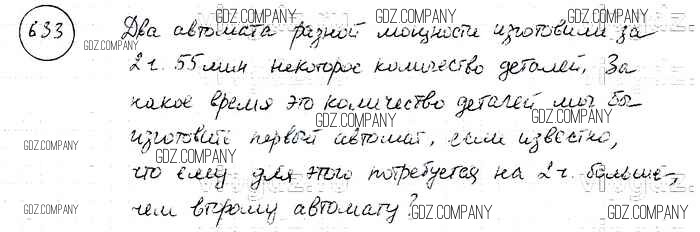 633
Два автомата разной мощности изготовили за
2 ч. 55 мин некоторое количество деталей. За
какое время это количество деталей мог бы
изготовить первый автомат, если известно,
что ему для этого потребуется на 2 ч. больше,
чем второму автомату?
GDZ.COMPANY
GDZ.COMPANY
GDZ.COMPANY
GDZ.COMPANY
GDZ.COMPANY
GDZ.COMPANY
GDZ.COMPANY
GDZ.COMPANY
GDZ.COMPANY
GDZ.COMPANY
GDZ.COMPANY
GDZ.COMPANY
GDZ.COMPANY